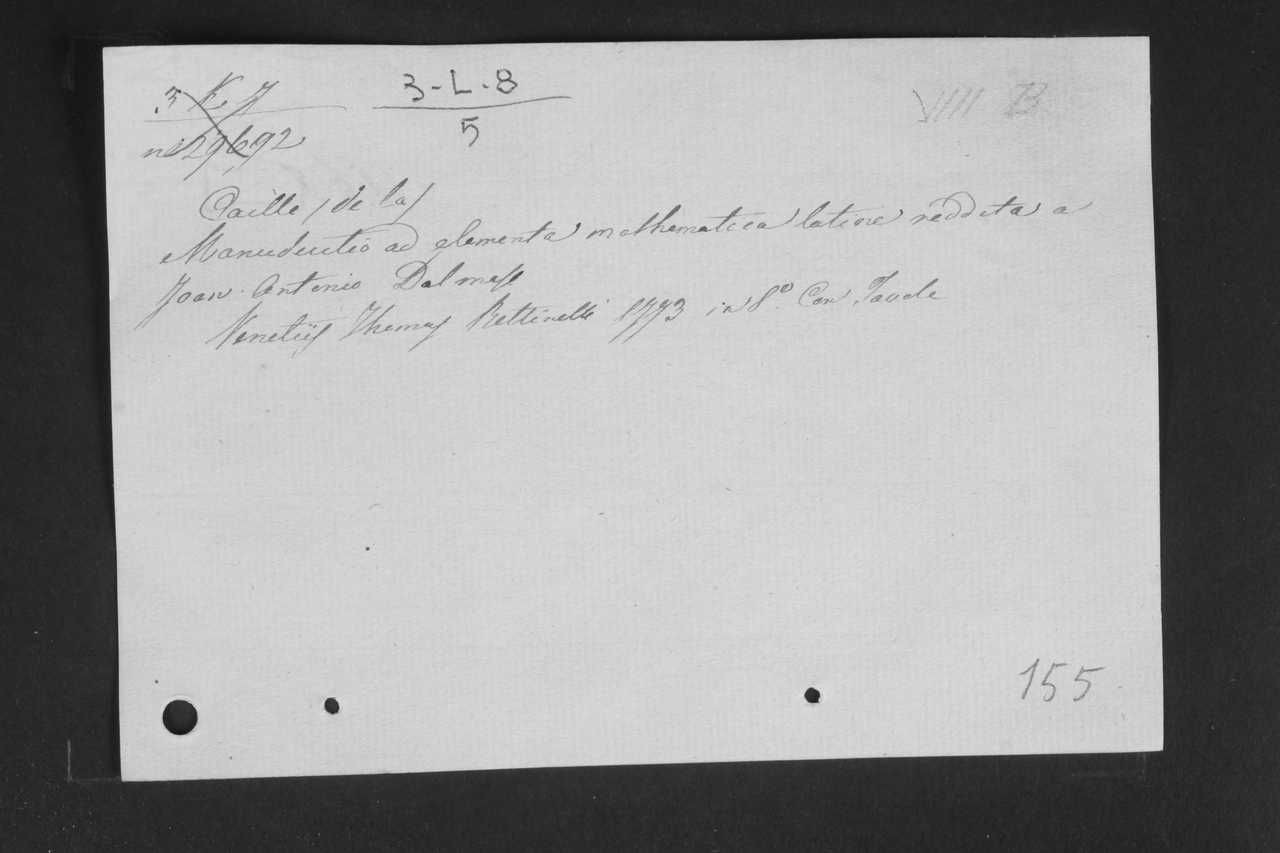 3 K 7
n° 29692
3-L-8
5
VIII B
Caille (de la)
Manuductio ad elementa mathematica latine reddita a
Joan. Antonio Dalmass
Venetiis Thomas Bettinelli 1773 in 8° Con Tavole
155